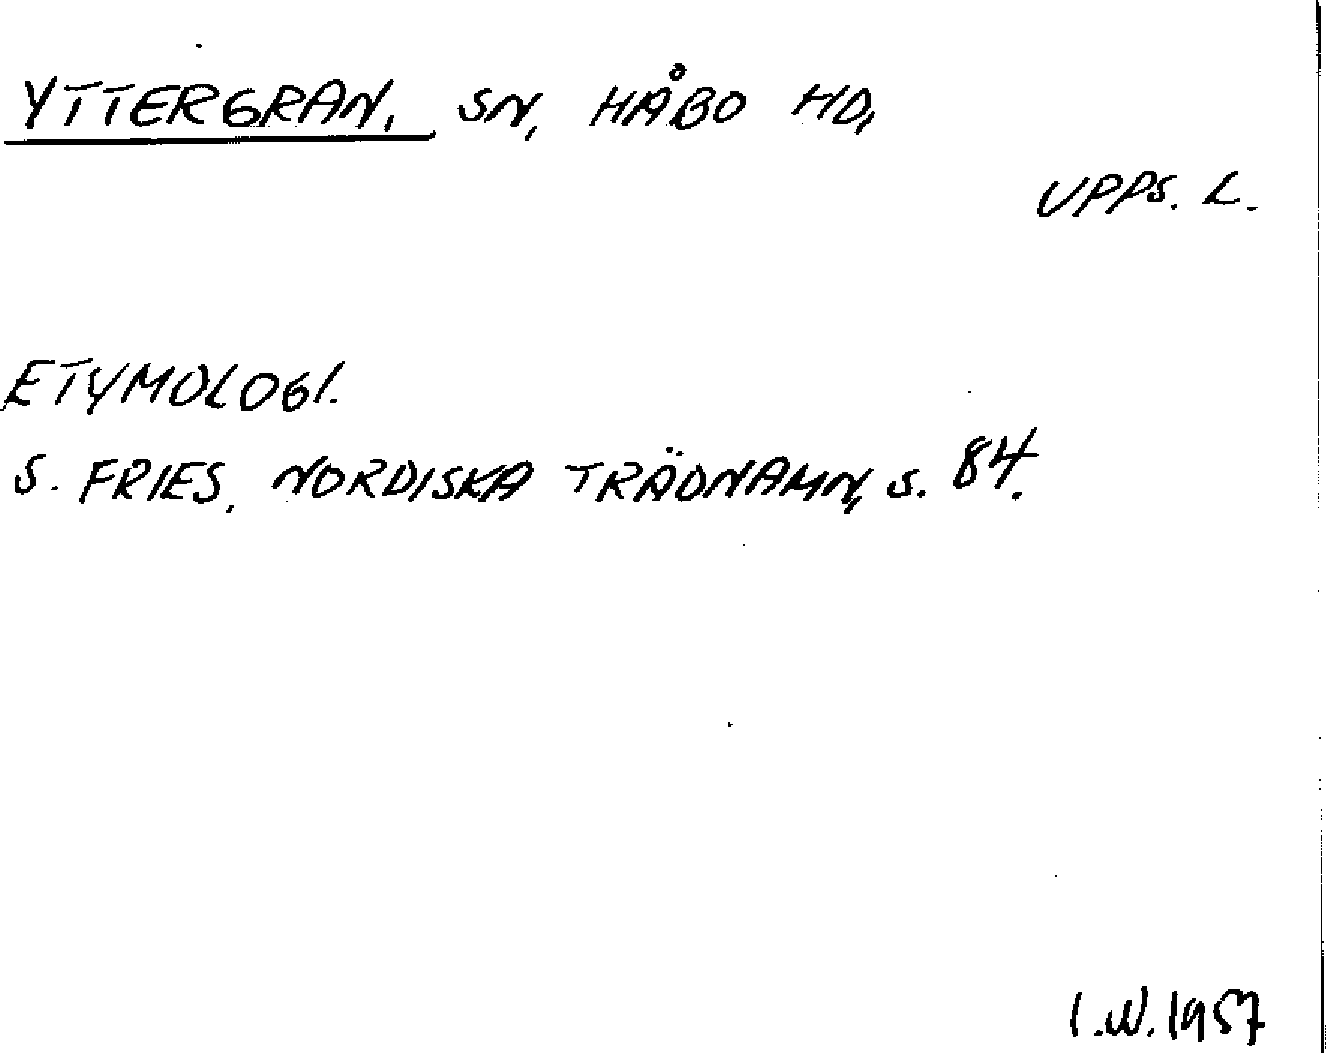 YTTERGRAN, SN, HÅBO HD,
UPPS. L.
ETYMOLOGI.
S. FRIES, NORDISKA TRÄDNAMN, S. 84.
I.W. 1957